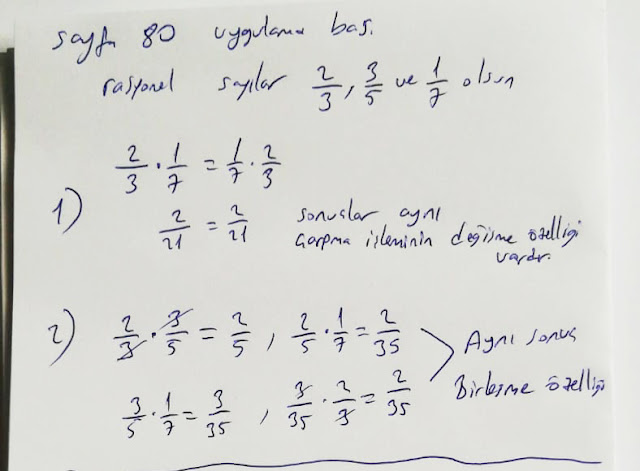 sayfa 80 uygulama bas.
rasyonel sayılar 2/3, 3/5 ve 1/7 olsun
1) 2/3 · 1/7 = 1/7 · 2/3
2/21 = 2/21 sonuçlar aynı
Çarpma işleminin değişme özelliği
vardır.
2) 2/3 · 3/5 = 2/5 , 2/5 · 1/7 = 2/35
3/5 · 1/7 = 3/35 , 3/35 · 2/3 = 2/35
Aynı sonuç
Birleşme özelliği